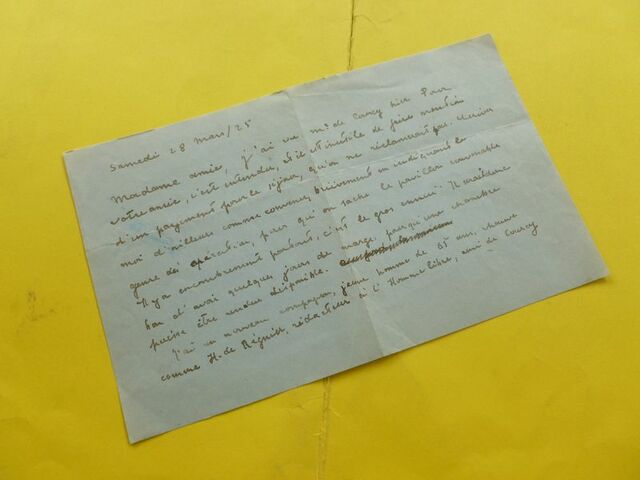 Samedi 28 Mars/25
Madame amie, j'ai vu Mr de Courcy hier. Pour
votre amie, c'est entendu, et il est inutile de faire mention
d'un payement pour le séjour, qu'on ne réclamerait pas. Écrivez
moi d'ailleurs comme convenu, brièvement en indiquant le
genre de l'opération, parce qu'on sache le pavillon convenable
Il y a encombrement partout, c'est le gros ennui. Il vaudrait
bon d'avoir quelques jours de marge pour qu'une chambre
puisse être rendue disponible.
J'ai un nouveau compagnon, jeune homme de 65 ans, chauve
comme H. de Régnier, rédacteur à l'Homme libre, ami de Courcy